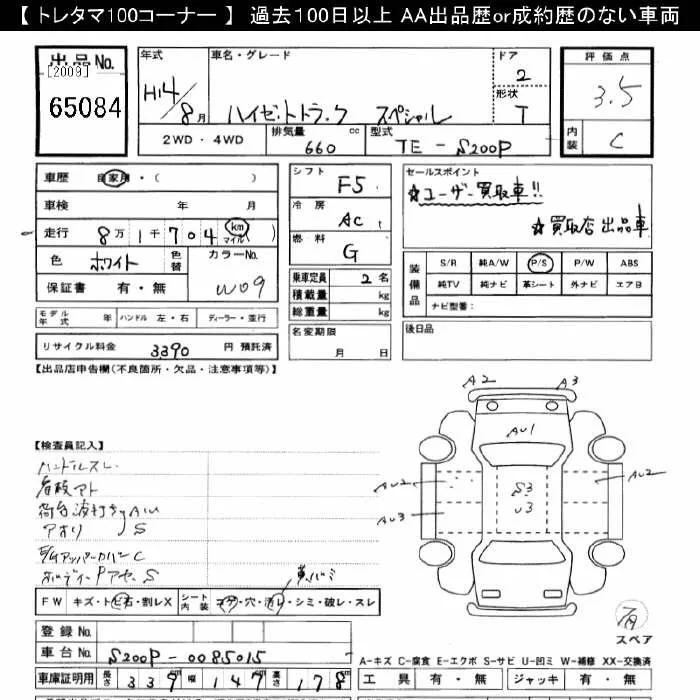 【 トレタマ100コーナー 】 過去100日以上 AA出品歴or成約歴のない車両
出品No.
[2009]
65084
年式
H14/8月
車名・グレード
ハイゼットトラック スペシャル
ドア
2
形状
T
評価点
3.5
内装
C
2WD・4WD
排気量 660 cc
型式 TE-S200P
車歴 自家用・( )
車検 年 月
走行 8万1千704 km マイル
色 ホワイト 色替
カラーNo. W09
保証書 有・無
シフト F5
冷房 AC
燃料 G
乗車定員 2名
積載量 kg
総重量 kg
名変期限
月 日
セールスポイント
☆ユーザー買取車!!
☆買取店出品車
装備品
S/R 純A/W P/S P/W ABS
純TV 純ナビ 革シート 外ナビ エアB
ナビ型番:
後日品
モデル年式 年 ハンドル 左・右 ディーラー・並行
リサイクル料金 3390 円 預託済
【出品店申告欄(不良箇所・欠品・注意事項等)】
【検査員記入】
ハンドルスレ
看板アト
荷台波打ちAU
アオリ S
F/Mアッパーカバー C
ボディーPアヤ S
FW キズ・トビ石・割レX
シート内装 コゲ・穴・汚レ・シミ・破レ・スレ
A2 A3
AU1
AU2 S3 AU2
AU3 U3
スペア
登録No.
車台No. S200P-0085015
A-キズ C-腐食 E-エクボ S-サビ U-凹ミ W-補修 XX-交換済
車庫証明用 長さ 339 幅 147 高さ 178
工具 有・無 ジャッキ 有・無